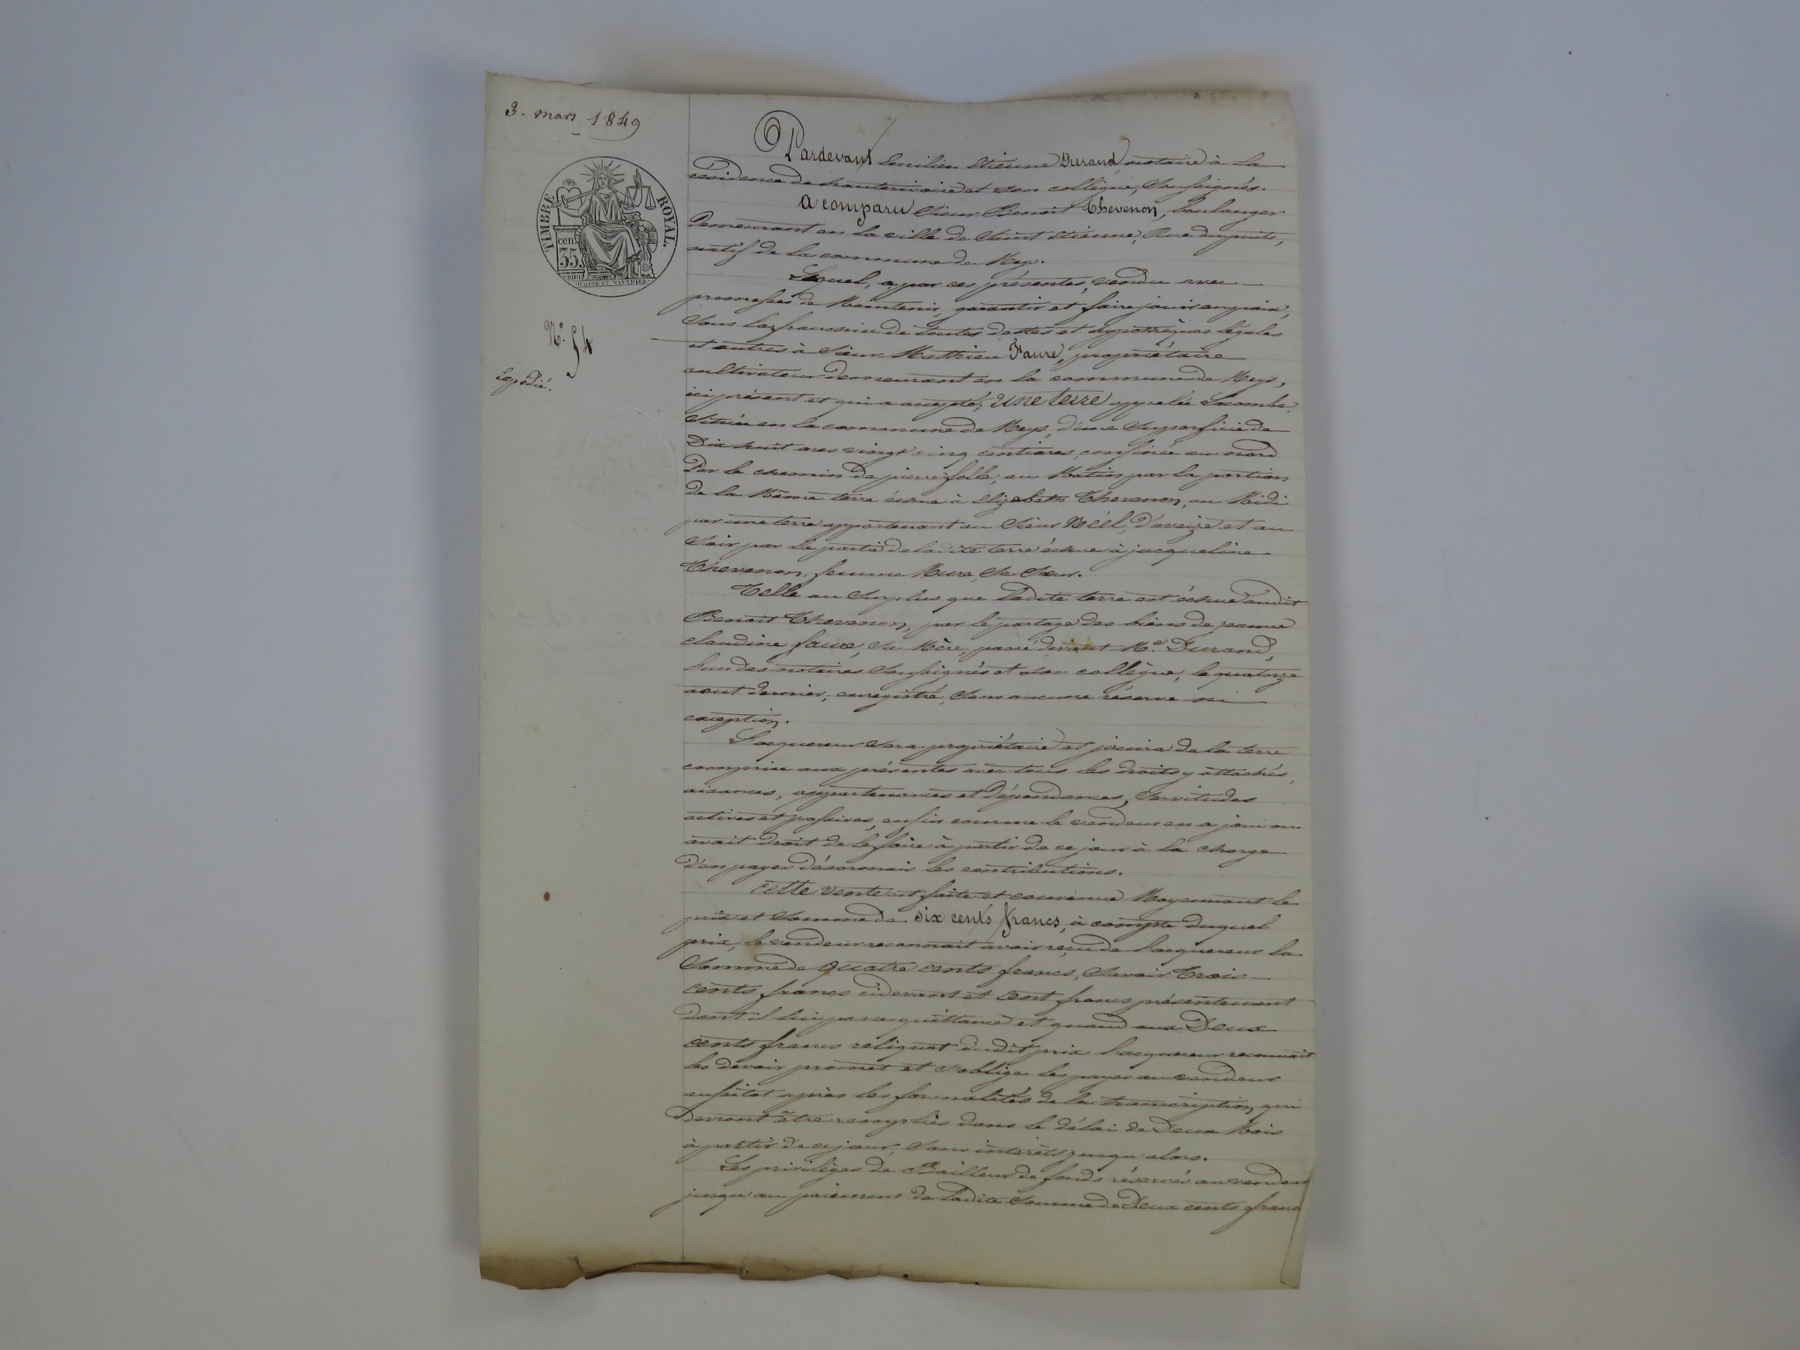 3. mars 1849
TIMBRE ROYAL.
cen.
35.
N.º 54
Expédié.
Pardevant Emilien Etienne Durand, notaire à la
residence de et son collègue, Soussignés.
A comparu Sieur Benoit Thevenon, boulanger
Demeurant en la ville de Saint Etienne, Rue dupuits,
natif de la commune de Meys.
Lequel, a par ces présentes, vendu avec
promesses de Maintenir, garantir et faire jouir en paix,
sous la franchise de toutes dettes et hypothèques légales
et autres à Sieur Mathieu Faure, propriétaire
cultivateur demeurant en la commune de Meys,
ici présent et qui a accepté, une terre appelée Lacombe,
Située en la commune de Meys, d'une Superficie de
Dix huit ares vingt cinq centiares, confinée au nord
Par le chemin de pierre folle, au Matin par la portion
de la Même terre échue à Elizabeth Thevenon, au Midi
par une terre appartenant au Sieur Noël, d'aveize et au
Soir par la partie de ladite terre échue à jacqueline
Thevenon, femme Mure, Sa Sœur.
Telle au Surplus que Ladite terre est échue audit
Benoit Thevenon, par le partage des biens de jeanne
claudine faure, Sa Mère, passé devant M.e Durand,
l'un des notaires Soussignés et Son collègue, le quatorze
aout dernier, enregistré, Sans aucune réserve ni
exception.
L'acquereur Sera propriétaire et jouira de la terre
comprise aux présentes avec tous les droits y attachés,
aisances, appartenances et dépendances, Servitudes
actives et passives, enfin comme le vendeur en a joui ou
avait droit de le faire à partir de ce jour à la charge
D'en payer désormais les contributions.
Cette vente est faite et convenue Moyennant le
prix et Somme de six cents francs, à compte duquel
prix, le vendeur reconnait avoir reçu de l'acquereur la
Somme de quatre cents francs, Savoir Trois
cents francs cidevant et cent francs présentement
dont il lui passe quittance et quand aux Deux
cents francs reliquat dudit prix l'acquereur reconnait
les devoir promet et s'oblige les payer au vendeur
aussitot après les formalités de la transcription qui
Devront être remplies dans le délai de Deux Mois
à partir de ce jour, Sans intérêts jusqu'alors.
Les privilèges de Bailleur de fonds réservés au vendeur
jusqu'au paiement de Ladite Somme de Deux cents francs